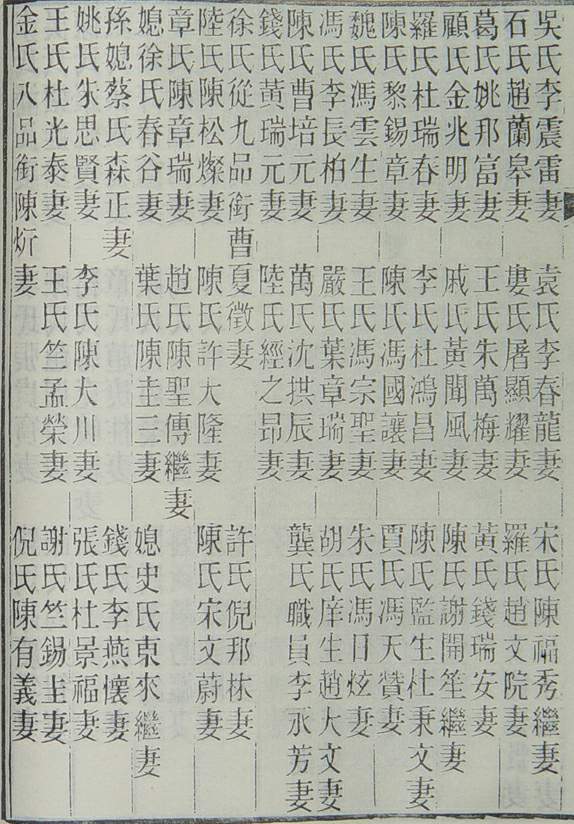 吳氏李震雷妻　袁氏李春龍妻　宋氏陳福秀繼妻
石氏趙蘭皋妻　婁氏屠顯耀妻　羅氏趙文院妻
葛氏姚邦富妻　王氏朱萬梅妻　黃氏錢瑞安妻
顧氏金兆明妻　戚氏黃聞風妻　陳氏謝開笙繼妻
羅氏杜瑞春妻　李氏杜鴻昌妻　陳氏監生杜秉文妻
陳氏黎錫章妻　陳氏馮國讓妻　賈氏馮天贊妻
魏氏馮雲生妻　王氏馮宗聖妻　朱氏馮日炫妻
馮氏李長柏妻　嚴氏葉章瑞妻　胡氏庠生趙大文妻
陳氏曹培元妻　萬氏沈拱辰妻　龔氏職員李永芳妻
錢氏黃瑞元妻　陸氏經之昂妻
徐氏從九品銜曹夏徵妻　許氏倪邦林妻
陸氏陳松燦妻　陳氏許大隆妻　陳氏宋文蔚妻
章氏陳章瑞妻　趙氏陳聖傳繼妻
媳徐氏春谷妻　葉氏陳圭三妻　媳史氏東來繼妻
孫媳蔡氏森正妻　錢氏李燕懷妻
姚氏朱思賢妻　李氏陳大川妻　張氏杜景福妻
王氏杜光泰妻　王氏竺孟榮妻　謝氏竺錫圭妻
金氏八品銜陳炘妻　倪氏陳有義妻